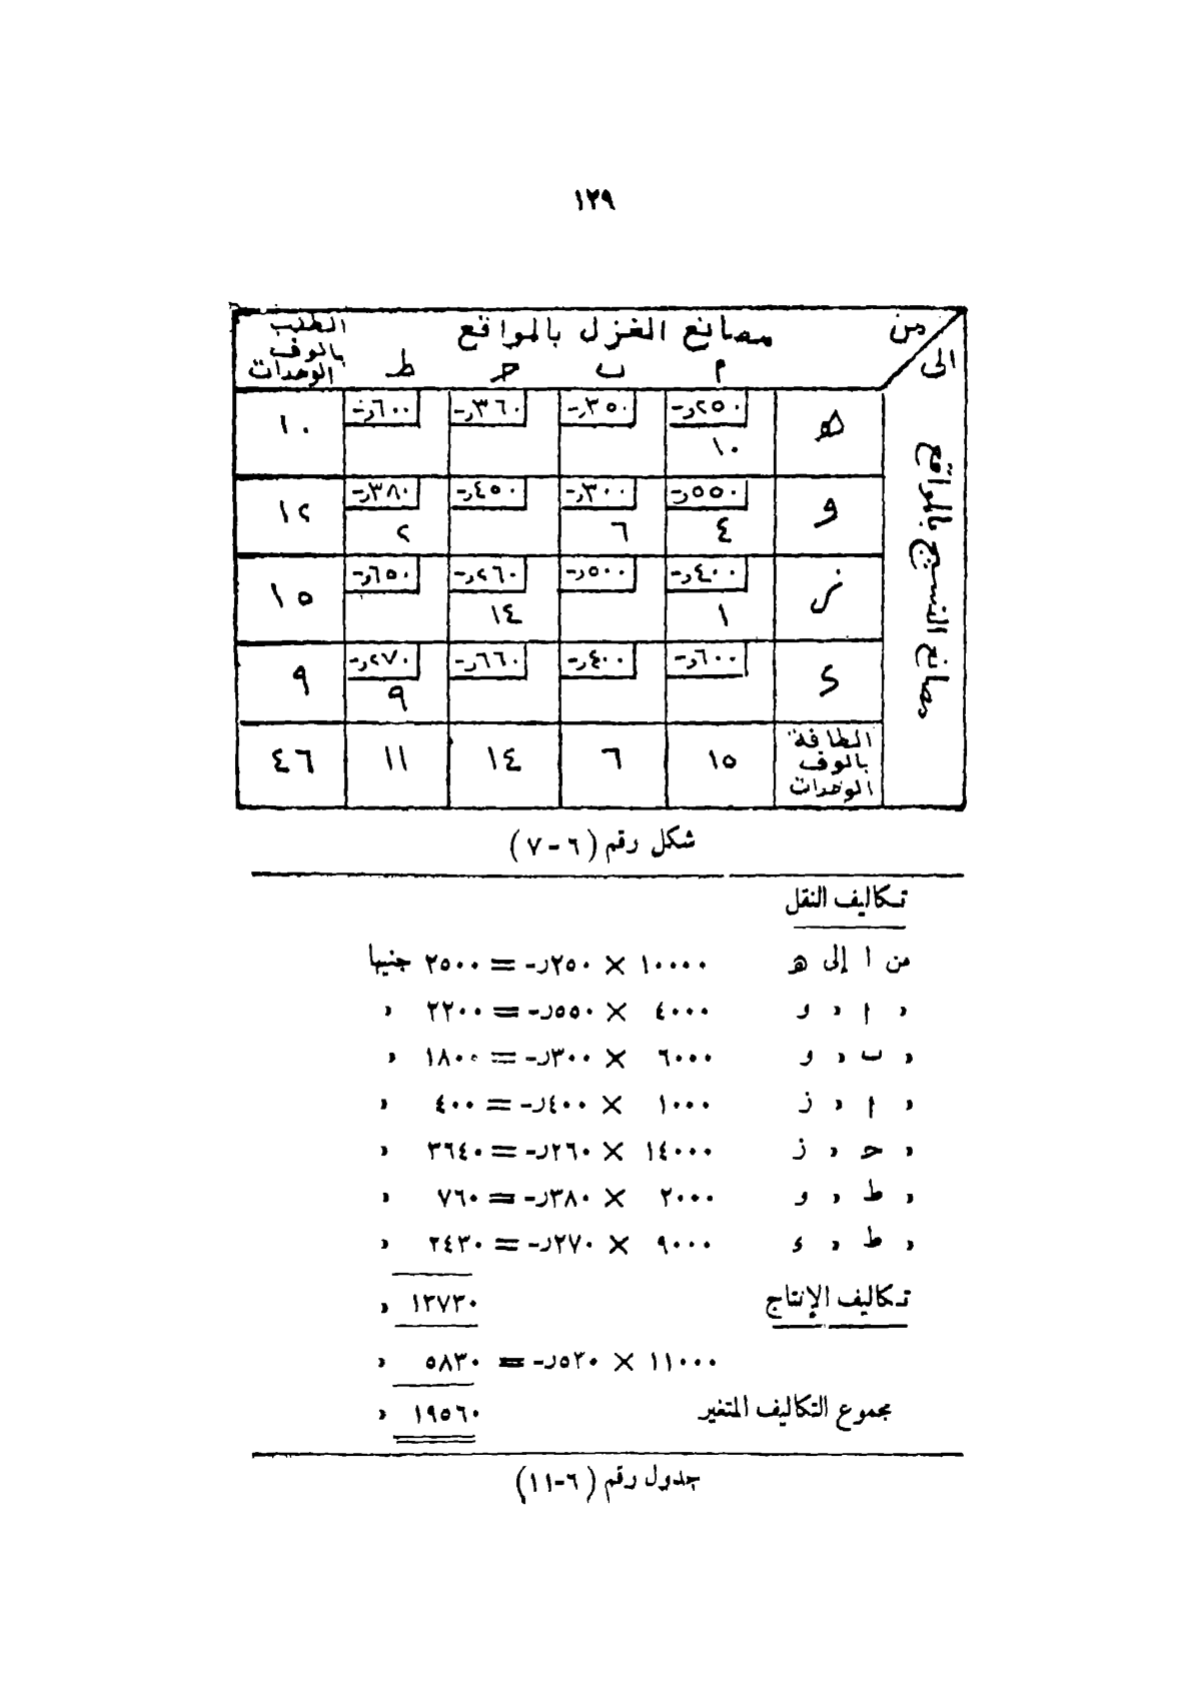 ١٢٩
من
الى
مصانع الغزل بالمواقع
م ب حـ ط
الطلب بالوف الوحدات
مصانع النسيج بالمواقع
هـ ٢٥٠ر- ٣٥٠ر- ٣٦٠ر- ٦٠٠ر- ١٠
١٠
و ٥٥٠ر- ٣٠٠ر- ٤٥٠ر- ٣٨٠ر- ١٢
٤ ٦ ٢
ز ٤٠٠ر- ٥٠٠ر- ٢٦٠ر- ٦٥٠ر- ١٥
١ ١٤
ء ٦٠٠ر- ٤٠٠ر- ٦٦٠ر- ٢٧٠ر- ٩
٩
الطاقة بالوف الوحدات ١٥ ٦ ١٤ ١١ ٤٦
شكل رقم (٦-٧)
تكاليف النقل
من ا إلى هـ ١٠٠٠٠ × ٢٥٠ر- = ٢٥٠٠ جنيها
« ا « و ٤٠٠٠ × ٥٥٠ر- = ٢٢٠٠ «
« ب « و ٦٠٠٠ × ٣٠٠ر- = ١٨٠٠ «
« ا « ز ١٠٠٠ × ٤٠٠ر- = ٤٠٠ «
« حـ « ز ١٤٠٠٠ × ٢٦٠ر- = ٣٦٤٠ «
« ط « و ٢٠٠٠ × ٣٨٠ر- = ٧٦٠ «
« ط « ء ٩٠٠٠ × ٢٧٠ر- = ٢٤٣٠ «
١٣٧٣٠ «
تكاليف الإنتاج
١١٠٠٠ × ٥٣٠ر- = ٥٨٣٠ «
مجموع التكاليف المتغير ١٩٥٦٠ «
جدول رقم (٦-١١)